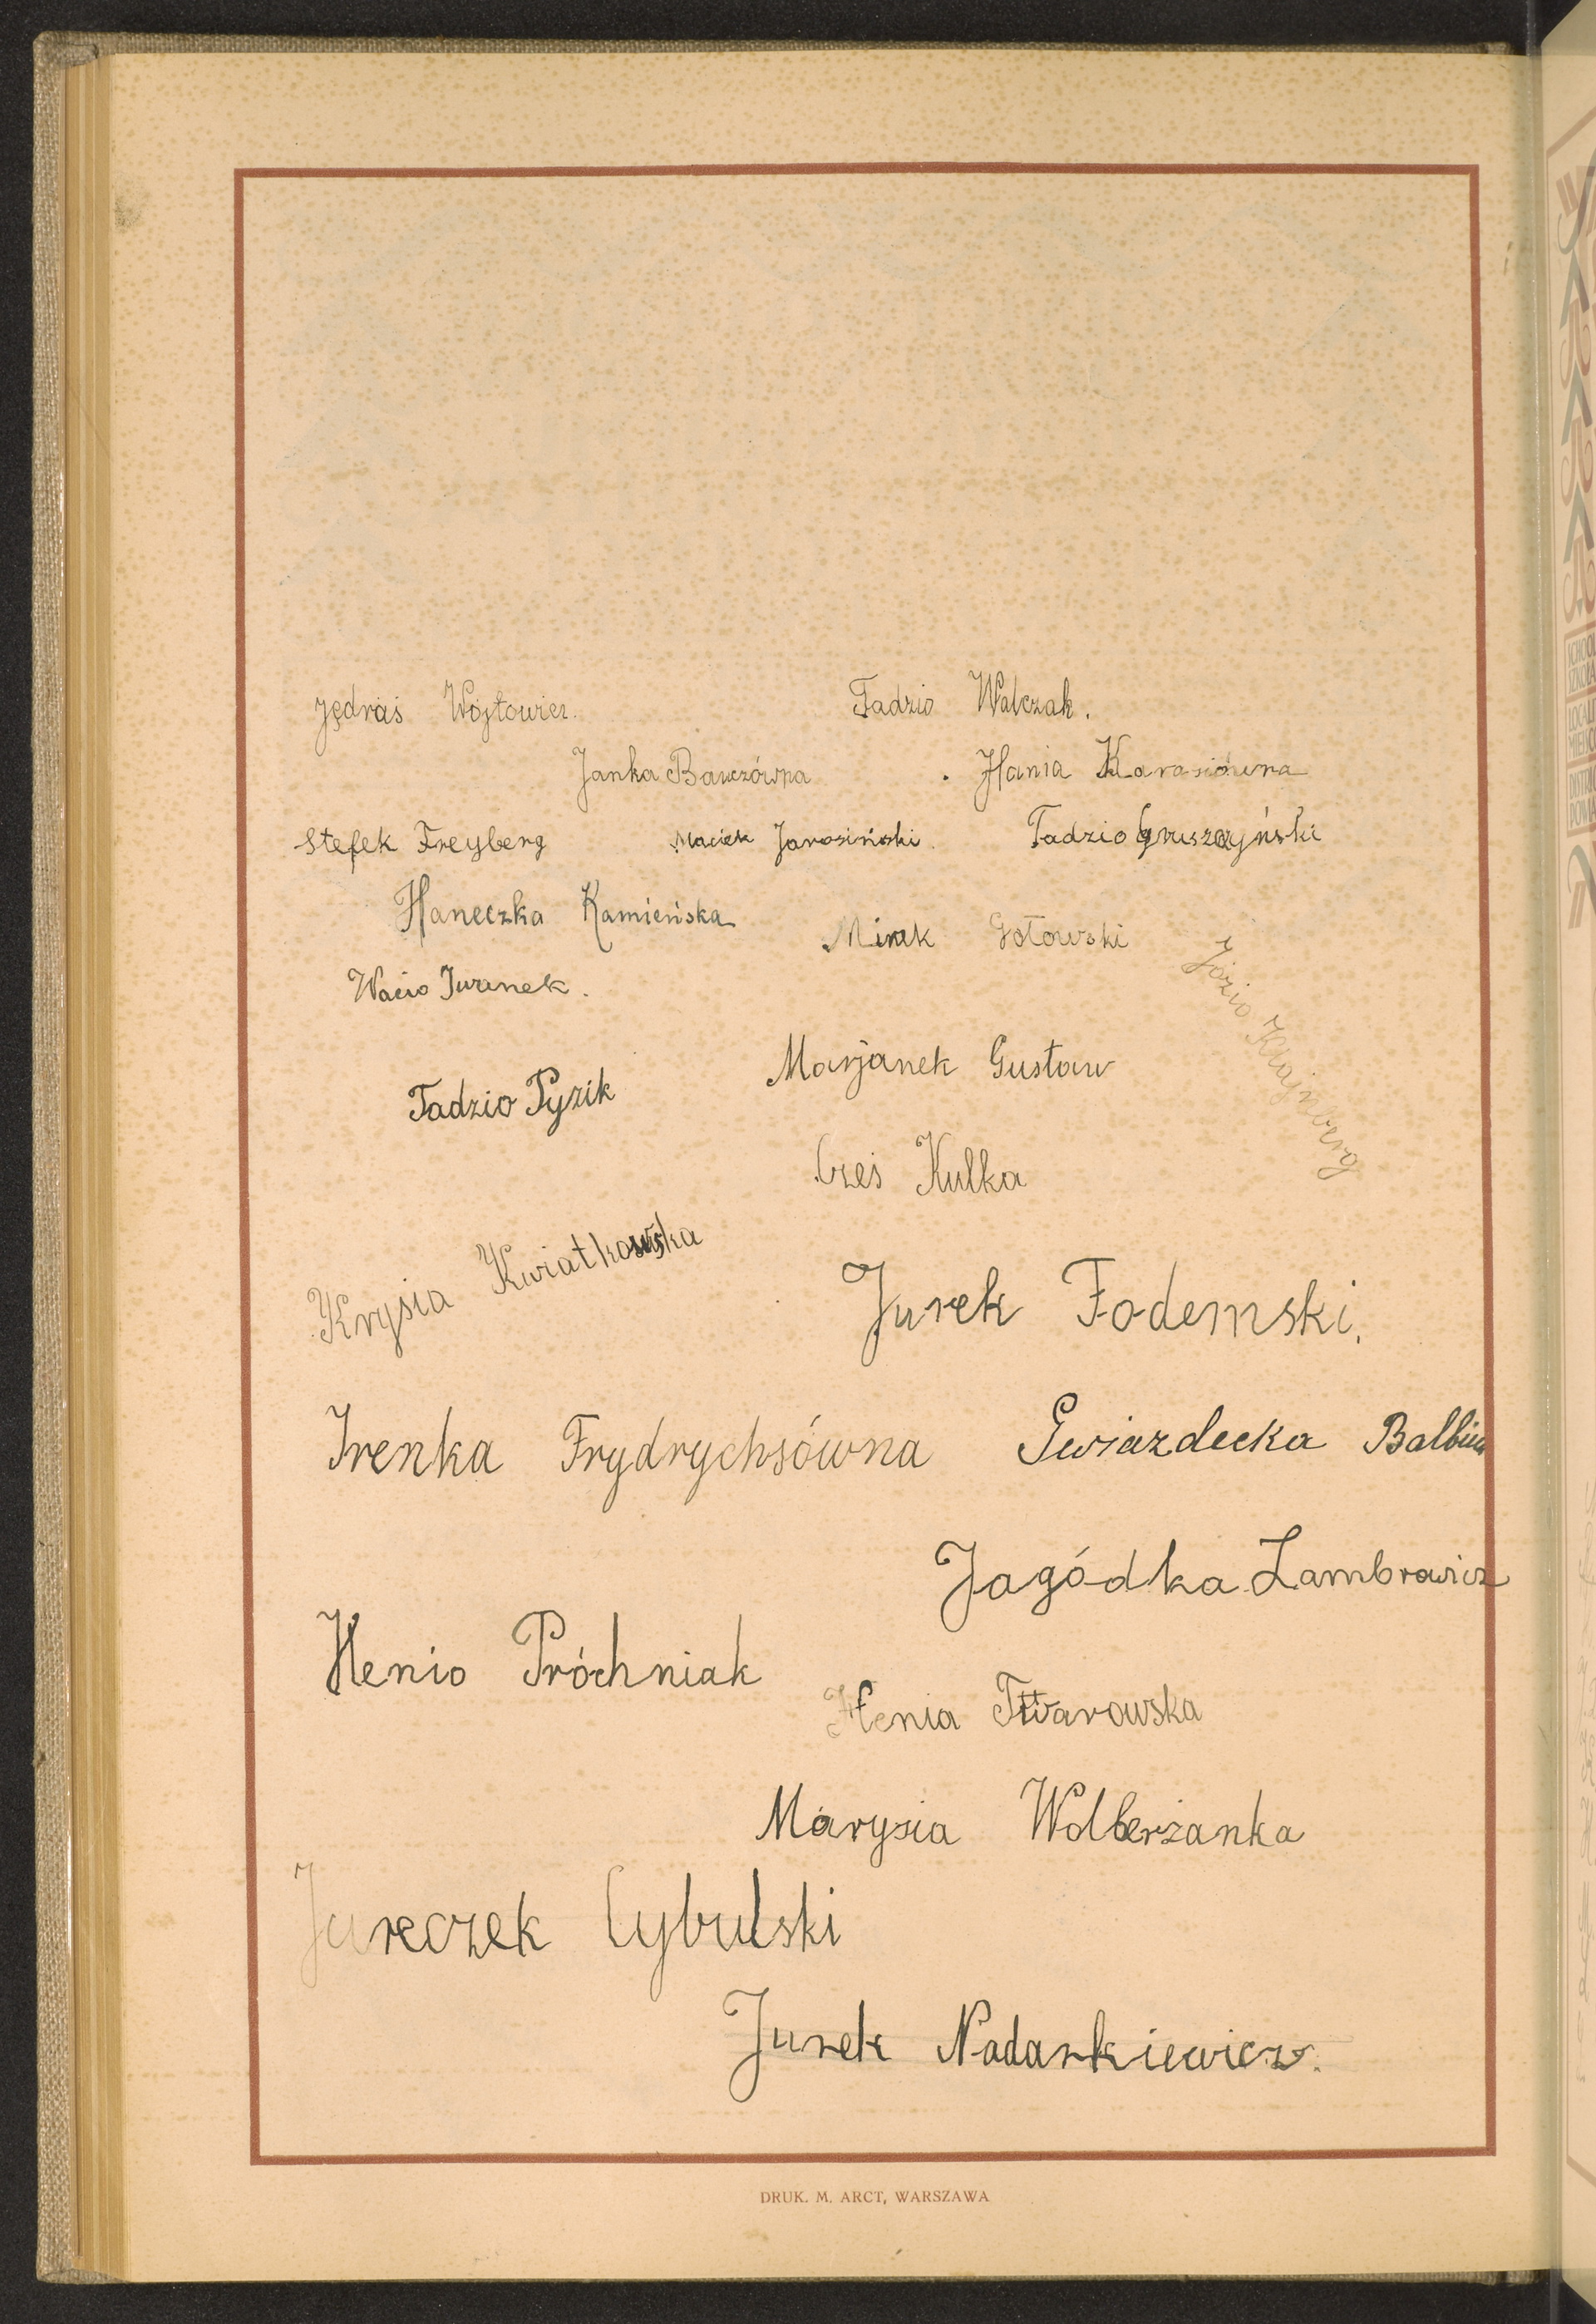 Jędraś Wójtowicz. Tadzio Walczak.
Janka Bawczówna . Hania Karasiówna
Stefek Freyberg Maciek Jarosiński. Tadzio Gruszczyński
Haneczka Kamieńska Mirek Gotowski
Wacio Juranek. Józio Klajnberg
Tadzio Pyzik Marjanek Gustaw
Cześ Kulka
Krysia Kwiatkowska
Jurek Fodemski.
Irenka Frydrychsówna Gwiazdecka Balbina
Jagódka Lambrowicz
Henio Próchniak
Henia Twarowska
Marysia Wolberżanka
Jureczek Cybulski
Jurek Nadarkiewicz.
DRUK. M. ARCT, WARSZAWA